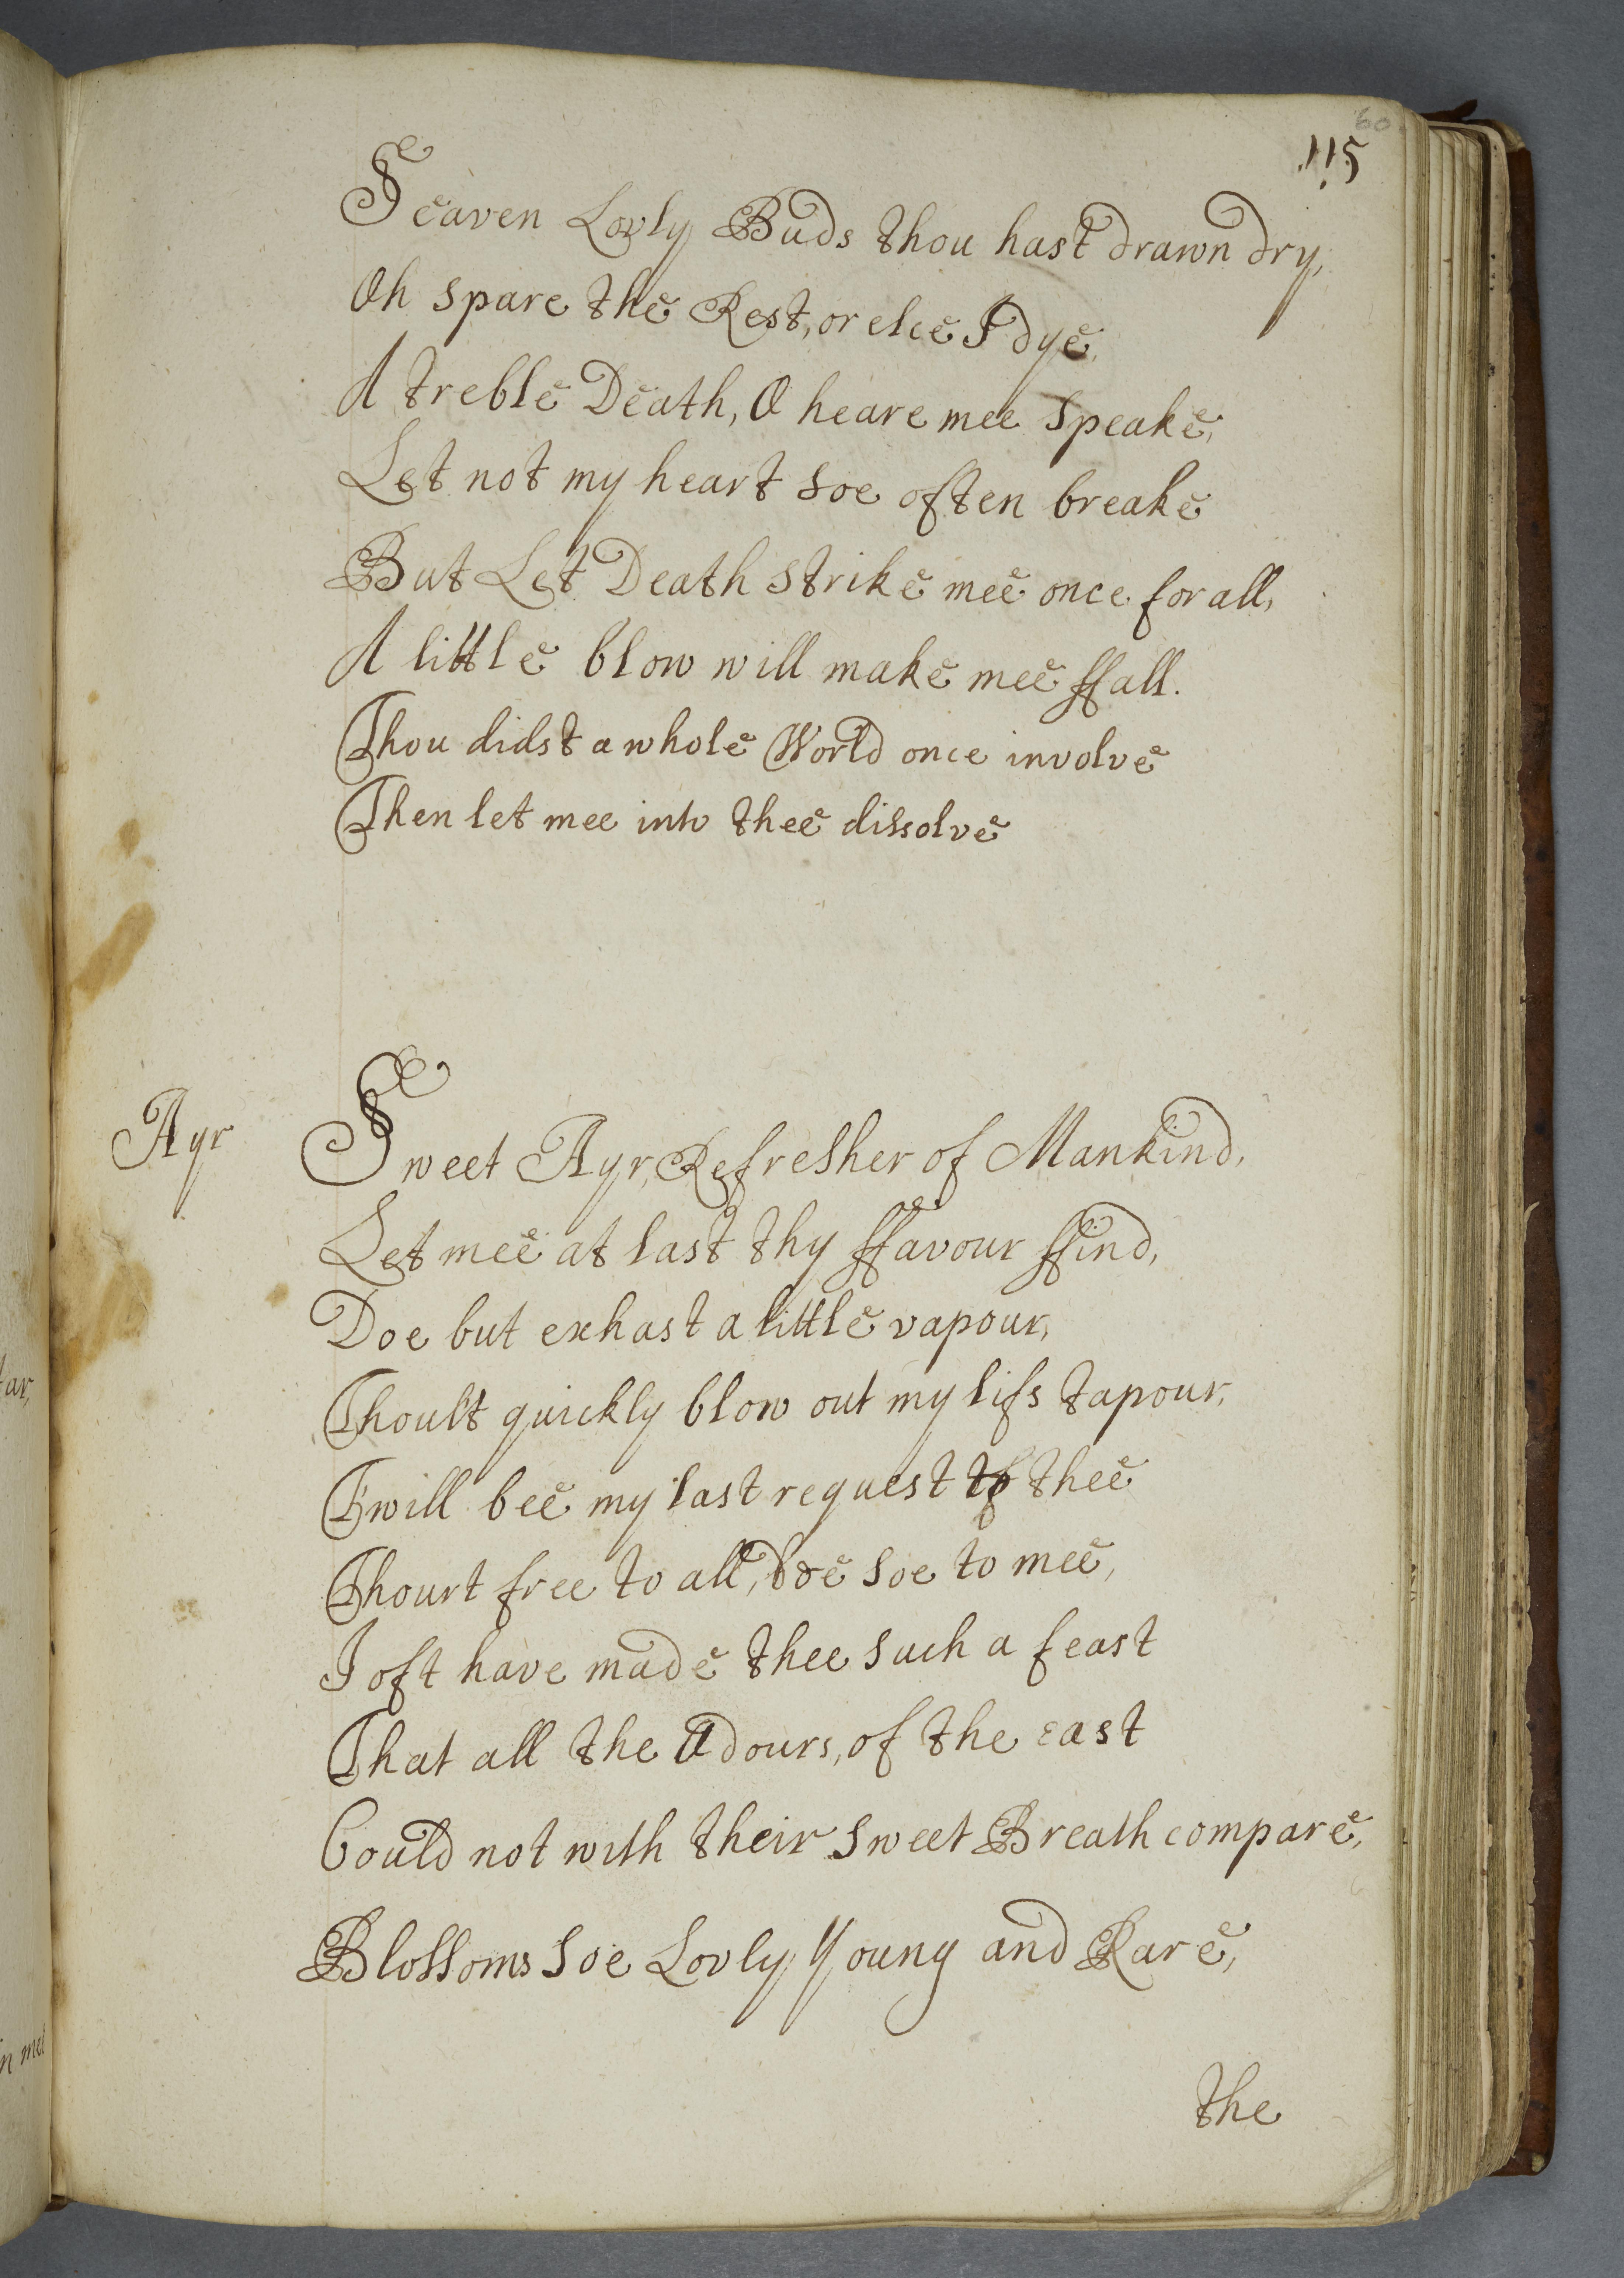 60
115
Seaven Lovly Buds thou hast drawn dry,
Oh spare the Rest, or elce I dye,
A treble Death, O heare mee speake,
Let not my heart soe often breake
But Let Death strike mee once for all,
A little blow will make mee ffall.
Thou didst a whole World once involve
Then let mee into thee dissolve
Ayr
Sweet Ayr, Refresher of Mankind,
Let mee at last thy ffavour ffind,
Doe but exhast a little vapour,
Thoul't quickly blow out my lifs tapour,
T'will bee my last request to thee
Thourt free to all, doe soe to mee,
I oft have made thee such a feast
That all the Odours, of the east
Could not with their sweet Breath compare,
Blossoms soe Lovly Young and Rare,
the
tar,
n mee